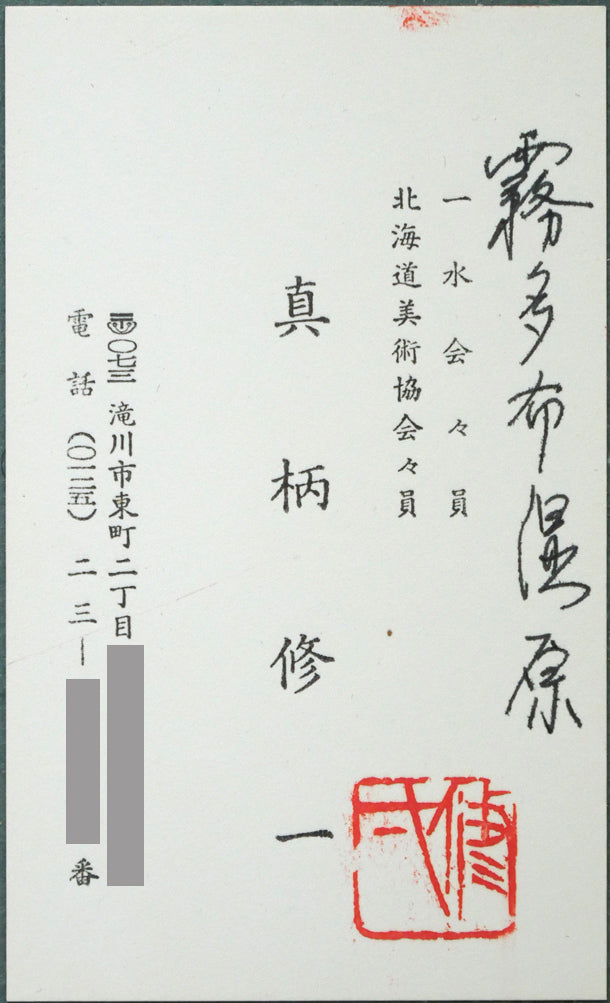 霧多布湿原
一水会々員
北海道美術協会々員
真柄修一
修弌
〒〇七三 滝川市東町二丁目
電話 (〇一二五) 二三― 番